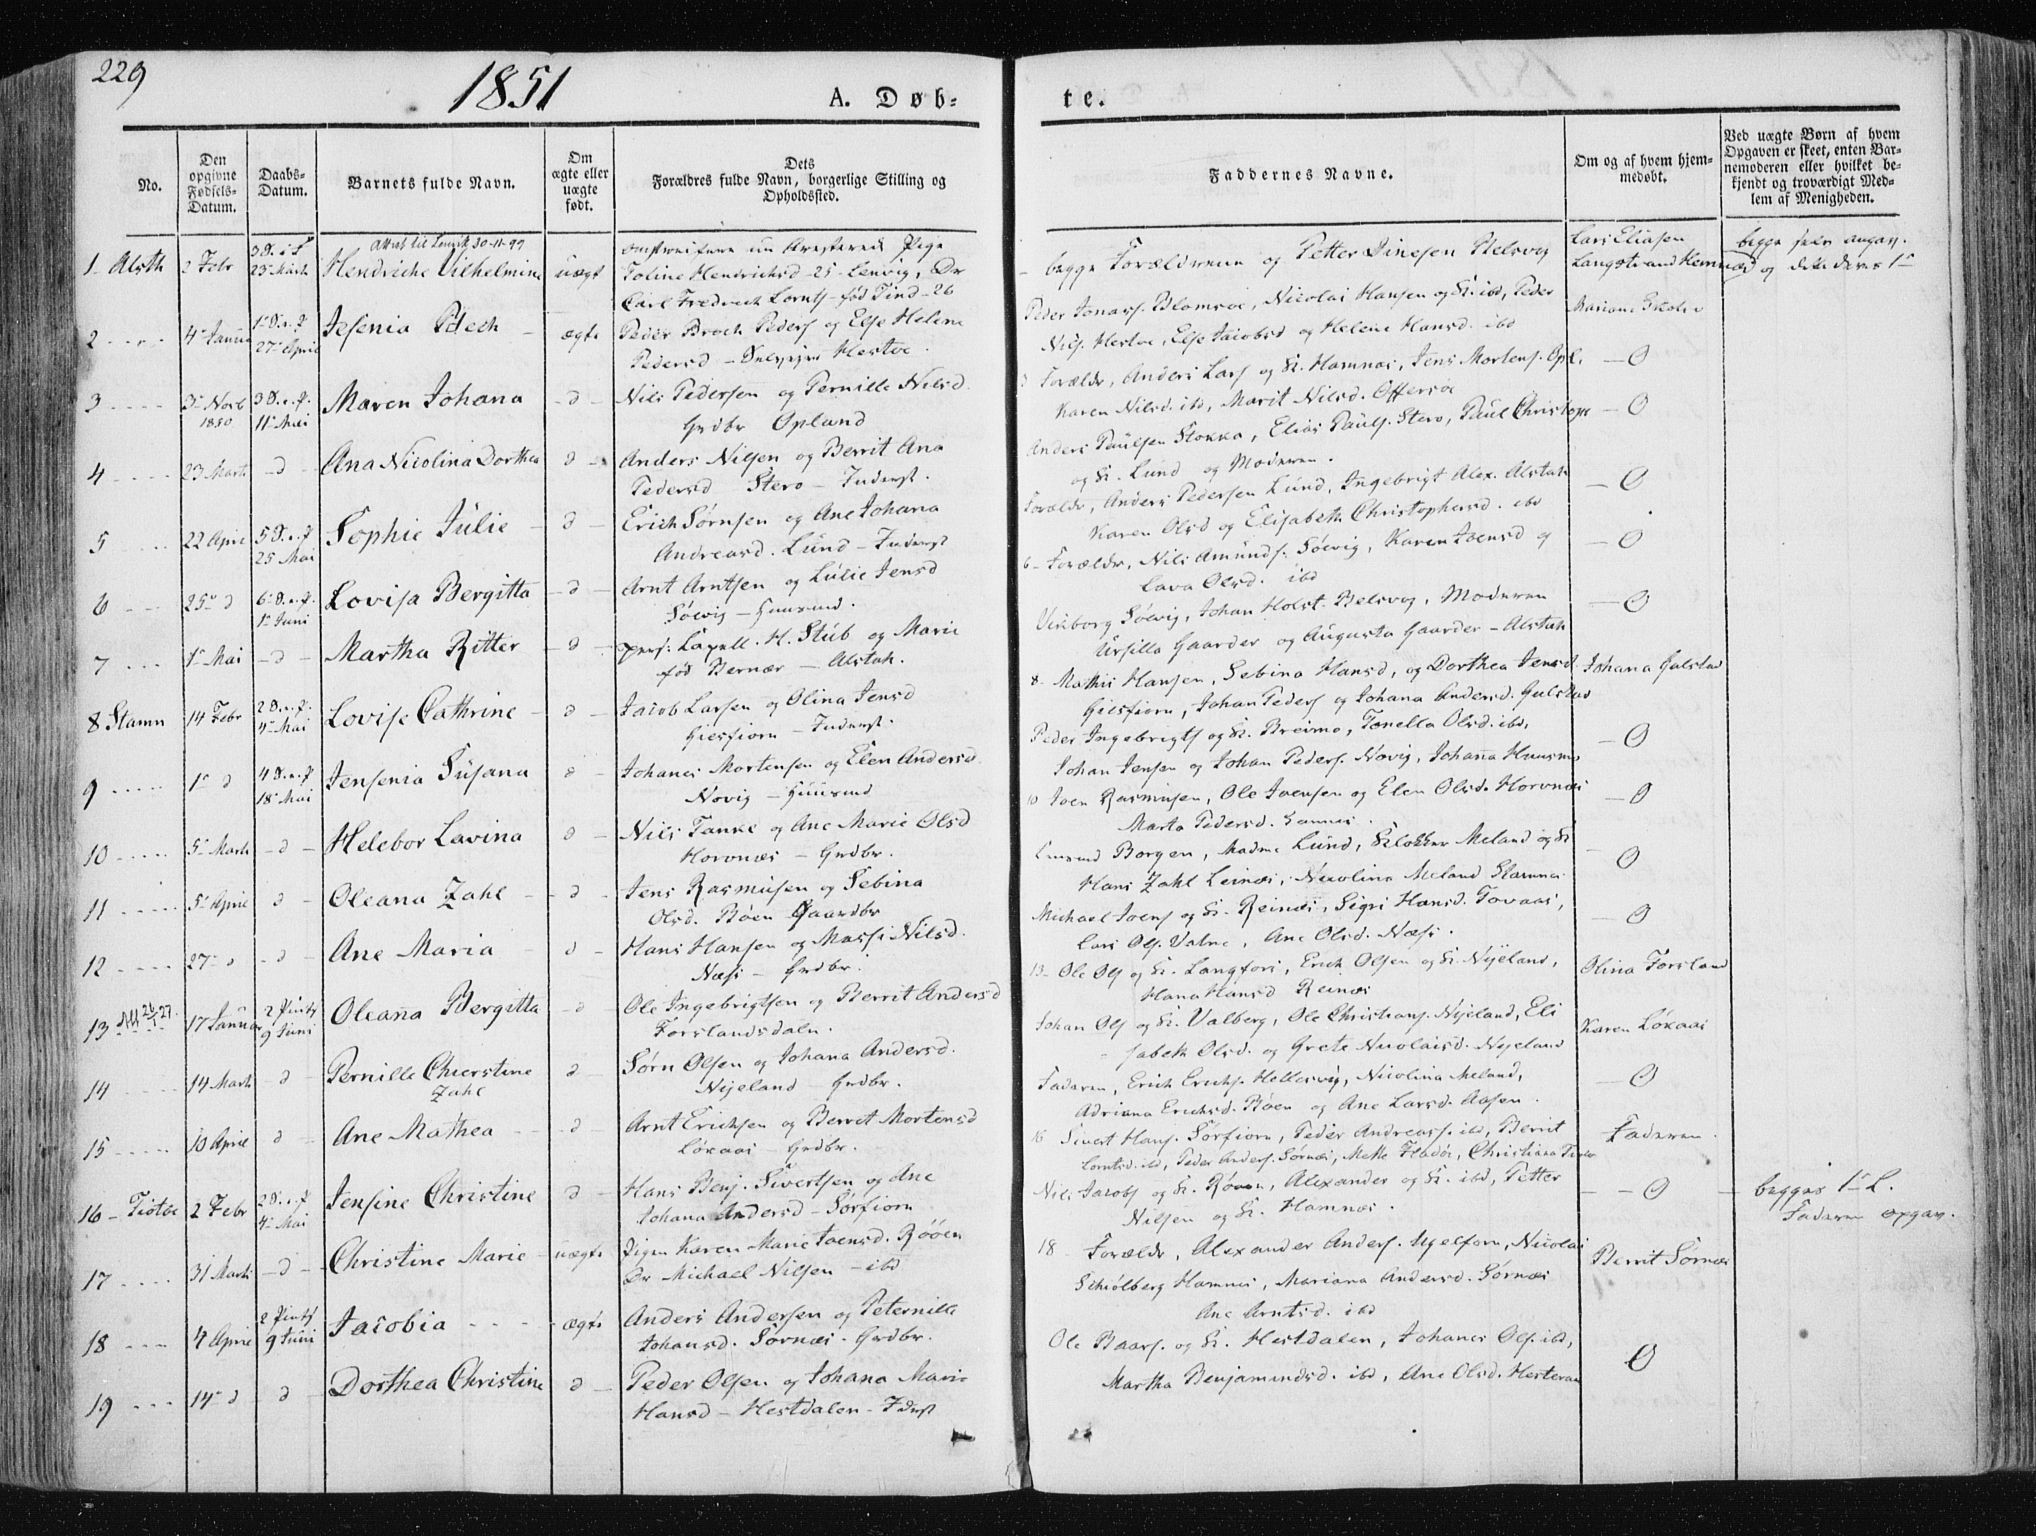 229
1851
A. Døb-
te.
No.
Den opgivne Fødsels-Datum.
Daabs-Datum.
Barnets fulde Navn.
Om ægte eller uægte født.
Dets Forældres fulde Navn, borgerlige Stilling og Opholdssted.
Faddernes Navne.
Om og af hvem hjemmedøbt.
Ved uægte Børn af hvem Opgaven er skeet, enten Barnemoderen eller hvilket bekjendt og troværdigt Medlem af Menigheden.
1 Alsth 2 Febr 23 Marts Hendriche Vilhelmine uægt
Attest til Lenvik 30-11-99
Toline Hendrichsd - 25 - Lenvig, Dr
Carl Fredrech Lornts - fød Tind - 26
begge Forældrene og Petter Dinesen Belsvog
Lars Eliasen
begge selv angav.
2 4 Januar 27 April Jesenia Pdech ægte
Peder Broch Peders og Else Helene
Pedersd - Hestøe
Peder Jonass. Blomsøe, Nicolai Hansen og K. ibd, Peder
Nils. Hestøe, Else Jacobsd og Helene Hansd. ibd
3 3 Novb 1850 3 S. e. P. 11 Mai Maren Johana d
Nils Pedersen og Pernille Nilsd
Grdbr Opland
Forældr, Anders Lars og K. Hamnæs, Jens Mortens. Opl.
Karen Nilsd. ibd, Marit Nilsd. Offersøe
O
4 23 Marts d Ana Nicolina Dorthea d
Anders Nilsen og Berrit Ana
Pedersd Stero - Inderst.
Anders Paulsen Stokka, Elias Pauls. Stero, Paul Christops
og K. Lund og Moderen.
O
5 22 April 5 S. e. P. 25 Mai Sophie Julie d
Erich Sørnsen og Ane Johana
Andreasd. Lund - Inderst
Forældr, Anders Pedersen Lund, Ingebrigt Alex. Alstah
Karen Olsd og Elisabeth Christophersd. ibd
O
6 25 d 6 S. e. P. 1 Juni Lovisa Bergitta d
Arnt Arntsen og Lucie Jensd
Sølvig - Huusmd.
6 - Forældr, Nils Amunds. Sølvig, Karen Joensd og
Lava Olsd. ibd
O
7 1 Mai d Martha Ritter d
pers. Capell. H. Stub og Marie
fød Bernær - Alstah.
Viuborg Sølvig, Johan Holst. Belsvog, Moderen
Ursilla Gaarder og Augusta Gaarder - Alstah
O
8 Stamn 14 Febr 2 S. e. P. 4 Mai Lovise Cathrine d
Jacob Larsen og Olina Jensd
Giesfiorn - Inderst.
8 - Mathis Hansen, Sebina Hansd, og Dorthea Jensd.
Giesfiorn, Johan Peders og Johana Andersd. Gulstad
Johana Gulstad
9 1 d 4 S. e. P 18 Mai Jensenia Susana d
Johanes Mortensen og Elen Andersd
Novig - Huusmd
Peder Ingebrigts og K. Breimo, Tonella Olsd. ibd,
Johan Jensen og Johan Peders. Novig, Johana
O
10 5 Marts d Helebor Lavina d
Nils Tanke og Ane Marie Olsd
Horvnæs - Grdbr.
10 Joen Rasmusen, Ole Joensen og Elen Olsd. Horvnæs
Marta Pedersd.
O
11 5 April d Oleana Zahl d
Jens Rasmusen og Sebina
Olsd. Bøen Gaardbr
Borgen, Madme Lund, Klokker Meland og K
Hans Zahl Leinæs, Nicolina Meland Stamnes
O
12 27 d d Ane Maria d
Hans Hansen og Massi Nilsd.
Næsi - Grdbr.
Michael Joens og K. Reinæs, Sigri Hansd. Tovaas,
Lars Ols. Valne, Ane Olsd. Næsi.
O
13 17 Januar 2 Pintsd 9 Juni Oleana Bergitta d
Ole Ingebrigtsen og Berrit Andersd
Forslandsdaln.
13 - Ole Ols og K. Langfors, Erich Olsen og K. Nyeland,
Hana Hansd Reinæs
Olina Forsland
14 14 Marts d Pernille Chierstine Zahl d
Sørn Olsen og Johana Andersd.
Nyeland Grdbr.
Johan Ols og K. Valberg, Ole Christians. Nyeland, Eli
sabeth Olsd. og Grete Nicolaisd. Nyeland
Karen Løkaas
15 10 April d Ane Mathea d
Arnt Erichsen og Berret Mortensd
Løkaas - Grdbr.
Faderen, Erich Erichs. Hellesvig, Nicolina Meland,
Adriana Erichsd. Bøen og Ane Larsd. Aasen.
O
16 Tiøtøe 2 Febr 2 S. e. P 4 Mai Jensine Christine d
Hans Benj. Sivertsen og Ane
Johana Andersd - Sørfiorn
16 Sivert Hans. Sørfiorn, Peder Andreass. ibd, Berrit
Lorntsd. ibd, Peder Anders. Sørnæs, Mette Fladøe, Christiana
Faderen.
17 31 Marts d Christine Marie uægte
Pigen Karen Marie Joensd. Røøen
Dr Michael Nilsen - ibd
Nils Jacobs og K. Røøen, Alexander og K. ibd, Petter
Nilsen og K. Hamnæs.
O
begges 1 L.
Faderen opgav.
18 4 April 2 Pintsd 9 Juni Jacobia ægte
Anders Andersen og Peternille
Johansd. Sørnæs - Grdbr.
18 - Forældr, Alexander Anders. Ugelforn, Nicolai
Schiølberg Hamnes, Mariana Andersd. Sørnæs
Ane Arntsd. ibd
Berrit Sørnæs
19 14 d d Dorthea Christine d
Peder Olsen og Johana Marie
Hansd - Hestdalen - Inderst
Ole Baars. og K. Hestdalen, Johanes Ols. ibd,
Martha Benjaminsd. ibd, Ane Olsd. Hesteran
O